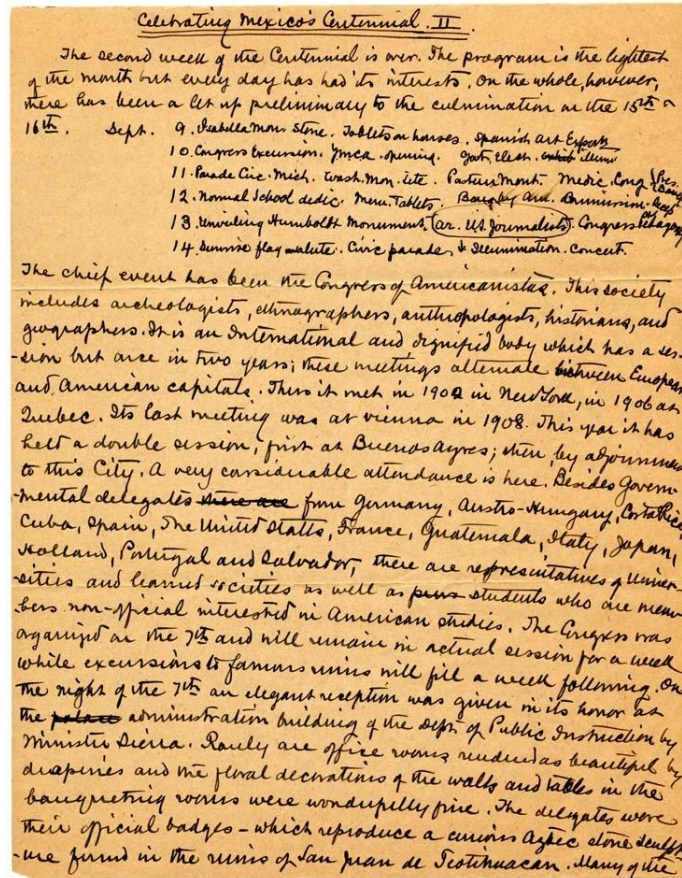 Celebrating Mexico's Centennial. II
The second week of the Centennial is over. The program is the lightest
of the month but every day has had its interests. On the whole, however,
there has been a let up preliminary to the culmination on the 15th -
16th. Sept. 9. Isabella Mon. Stone. Tablets on houses. Spanish Art
10. Congress Excursion. YMCA opening. Elect.
11. Parade Civ. Mich. Wash. Mon. Pasteur Mont. Medic. Cong
12. Normal School dedic. Mem. Tablets.
13. Unveiling Humboldt Monument. (ar. US. Journalists). Congress
14. Sunrise flag salute. Civic parade & Illumination. Concert.
The chief event has been the Congress of Americanistas. This society
includes archeologists, ethnographers, anthropologists, historians, and
geographers. It is an International and dignified body which has a ses-
-sion but once in two years; these meetings alternate between European
and American capitals. Thus it met in 1902 in New York, in 1906 at
Quebec. Its last meeting was at Vienna in 1908. This year it has
held a double session, first at Buenos Ayres; then, by adjournment
to this City. A very considerable attendance is here. Besides Govern-
-mental delegates there are from Germany, Austro-Hungary, Costa Rica,
Cuba, Spain, The United States, France, Guatemala, Italy, Japan,
Holland, Portugal and Salvador, there are representatives of Univer-
sities and learned societies as well as students who are mem-
bers non-official interested in American studies. The Congress was
organized on the 7th and will remain in actual session for a week
while excursions to famous ruins will fill a week following. On
the night of the 7th an elegant reception was given in its honor at
the palace administration building of the Dept. of Public Instruction by
Minister Sierra. Rarely are office rooms rendered as beautiful by
draperies and the floral decorations of the walls and tables in the
banqueting rooms were wonderfully fine. The delegates wore
their official badges - which reproduce a curious Aztec stone sculpt-
-ure found in the ruins of San Juan de Teotihuacan. Many of the